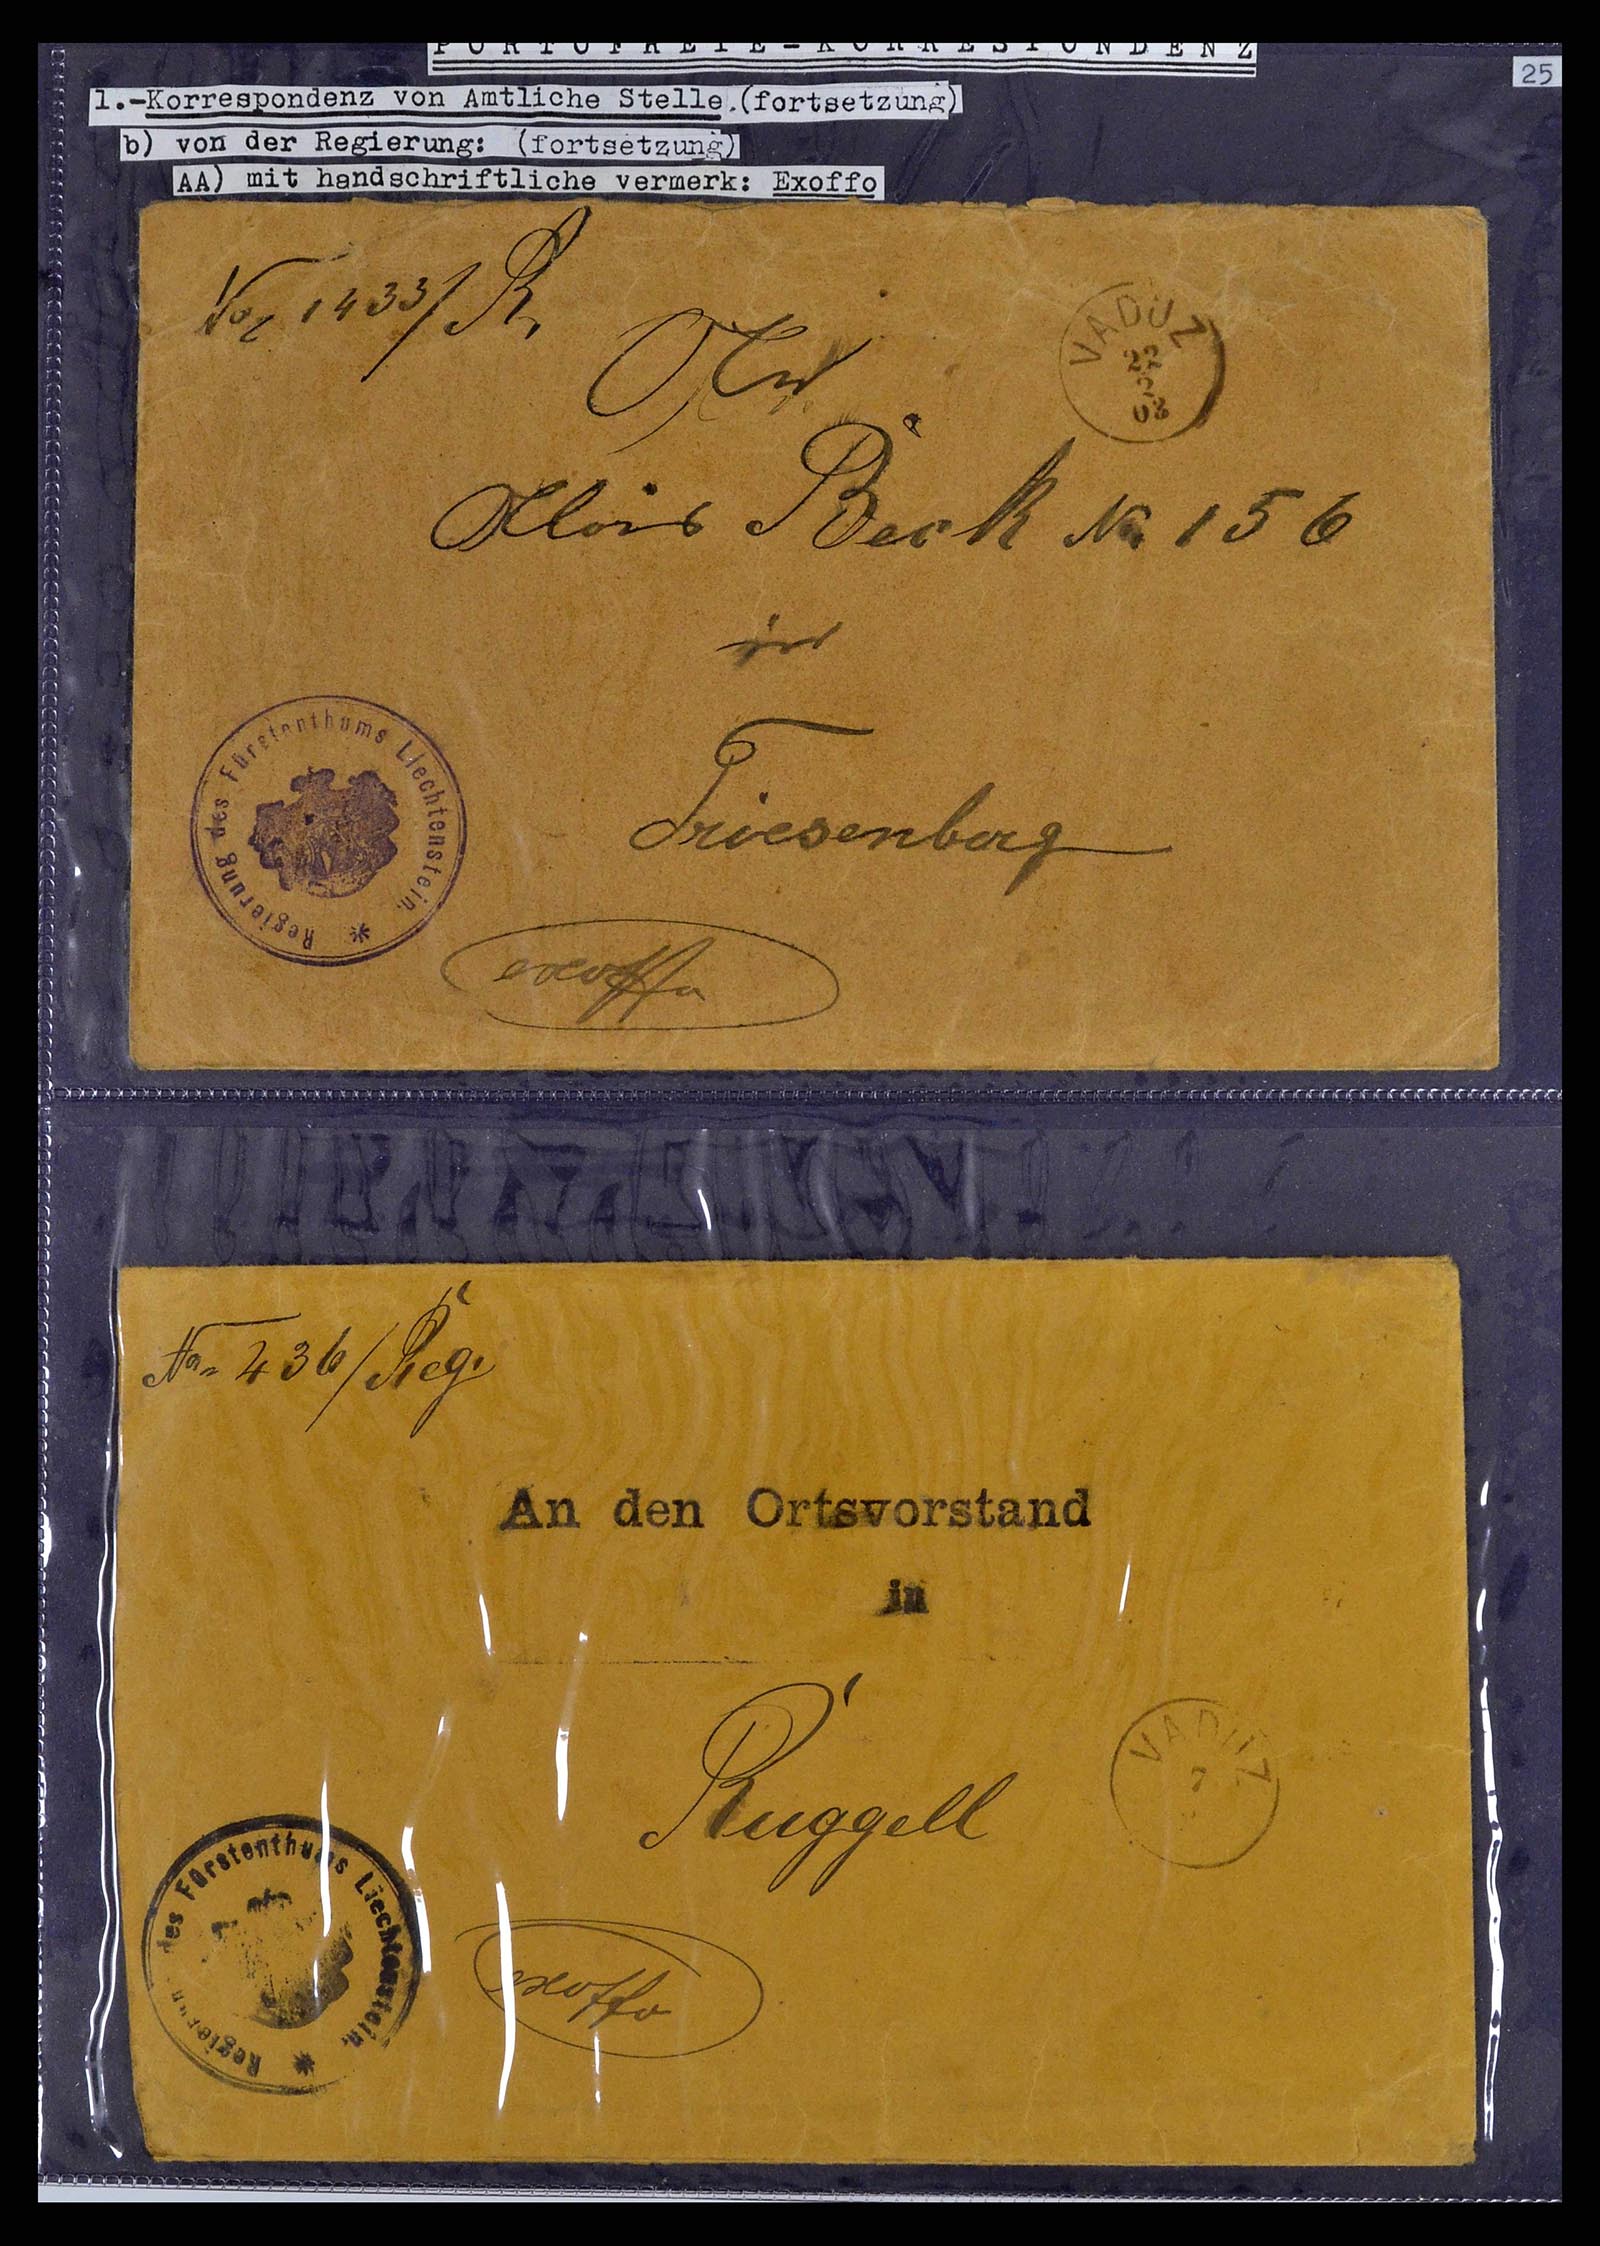 PORTOFREIE-KORRESPONDENZ
25
1.-Korrespondenz von Amtliche Stelle.(fortsetzung)
b) von der Regierung: (fortsetzung)
AA) mit handschriftliche vermerk: Exoffo
No. 1433/R.
VADUZ
22
2
02
Alois Beck No. 156
in
Triesenberg
Regierung des Fürstenthums Liechtenstein.
exoffo
No. 436/Reg.
An den Ortsvorstand
in
Ruggell
VADUZ
7
Regierung des Fürstenthums Liechtenstein.
exoffo